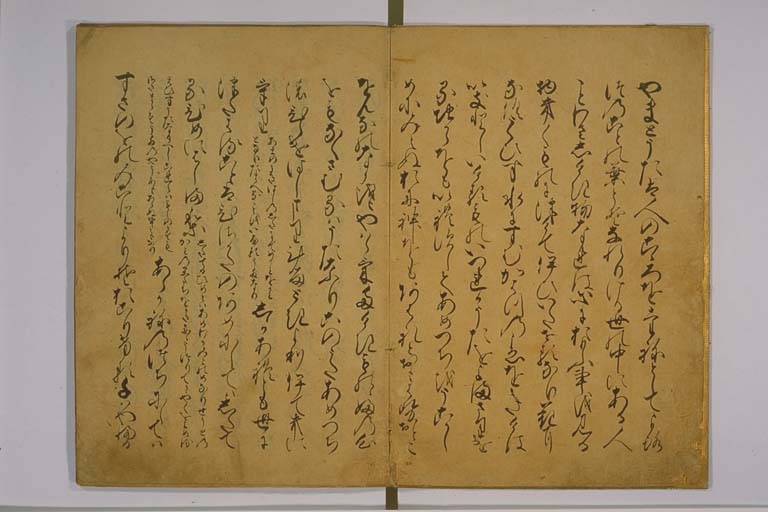 やまとうたは人のこゝろをたねとしてよろ
つのことの葉とそなれりける世中にある人
ことわさしけき物なれは心におもふ事を見る
物きくものにつけていひいたせるなり花に
なくうくひす水にすむかはつのこゑをきけは
いきとしいけるものいつれかうたをよまさりける
ちからをもいれすしてあめつちをうこかし
めに見えぬおに神をもあはれとおもはせおとこ
をんなのなかをもやはらけたけきものゝふの心
をもなくさむるはうたなりこのうたあめつち
のひらけはしまりける時よりいてきに
けり しかあれとも世に
つたはることはひさかたのあめにしてしたて
るひめにはしまり
えひすうたなるへし あらかねのつちにしては
すさのをのみことよりそおこりけるちはやふる